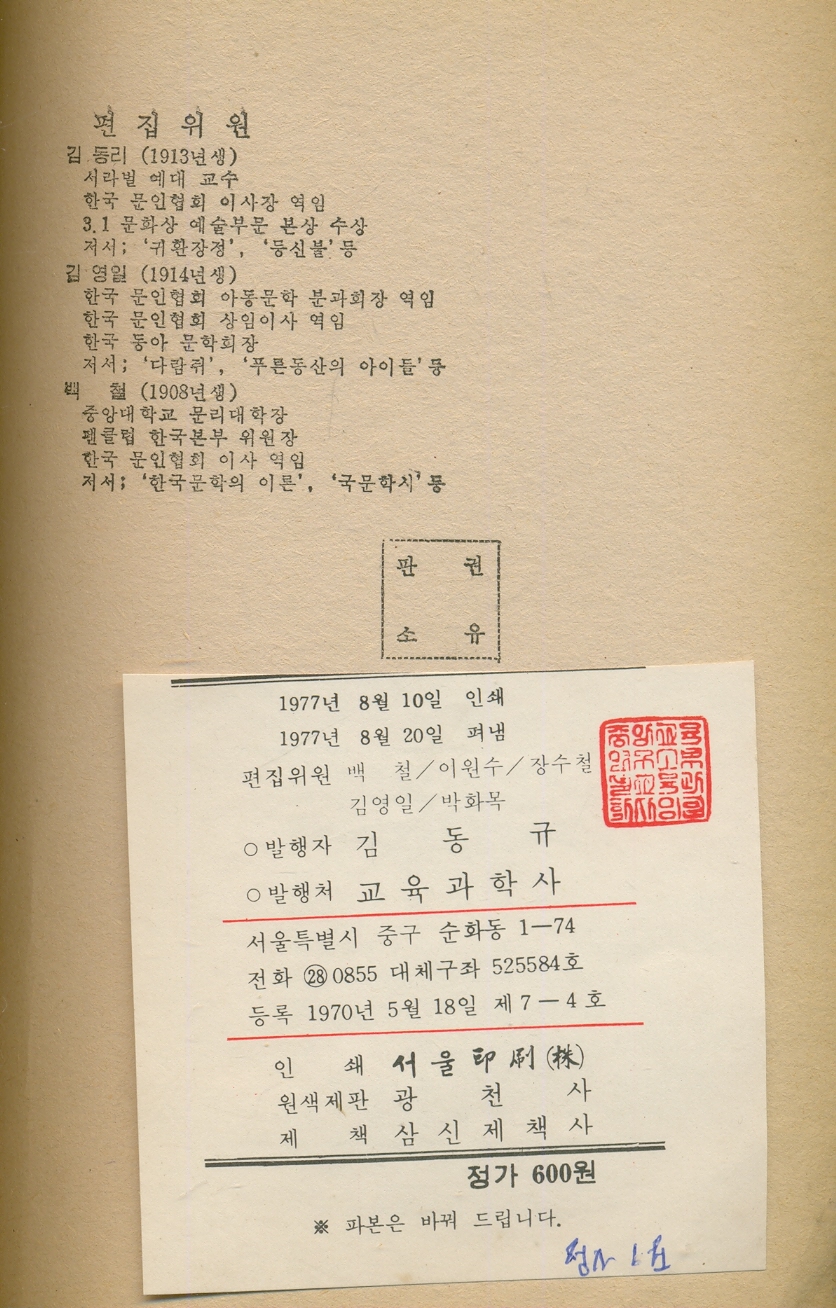 편 집 위 원
김 동리 (1913년생)
서라벌 예대 교수
한국 문인협회 이사장 역임
3.1 문화상 예술부문 본상 수상
저서; ‘귀환장정’, ‘등신불’ 등
김 영일 (1914년생)
한국 문인협회 아동문학 분과회장 역임
한국 문인협회 상임이사 역임
한국 동아 문학회장
저서; ‘다람쥐’, ‘푸른동산의 아이들’ 등
백 철 (1908년생)
중앙대학교 문리대학장
팬클럽 한국본부 위원장
한국 문인협회 이사 역임
저서; ‘한국문학의 이론’, ‘국문학사’ 등
판 권
소 유
1977년 8월 10일 인쇄
1977년 8월 20일 펴냄
편집위원 백 철／이원수／장수철
김영일／박화목
○ 발행자 김 동 규
○ 발행처 교 육 과 학 사
서울특별시 중구 순화동 1—74
전화 ㉘ 0855 대체구좌 525584호
등록 1970년 5월 18일 제 7 — 4 호
인 쇄 서울印刷(株)
원색제판 광 천 사
제 책 삼 신 제 책 사
정가 600원
※ 파본은 바꿔 드립니다.